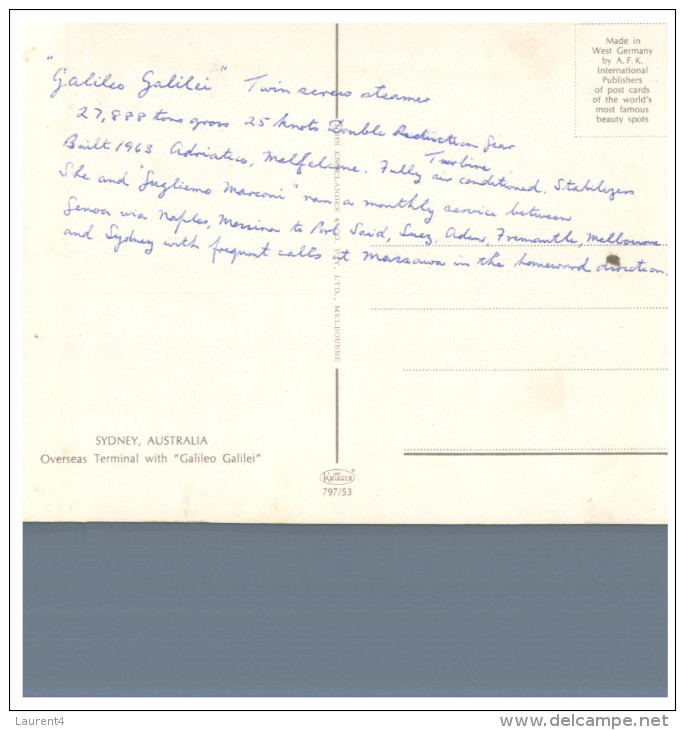 "Galileo Galilei" Twin screw steamer
27,888 tons gross 25 knots Double Reduction Gear
Turbine
Built 1963 Adriatico, Monfalcone. Fully air conditioned. Stabilizers
She and "Guglielmo Marconi" ran a monthly service between
Genoa via Naples, Messina to Port Said, Suez, Aden, Fremantle, Melbourne
and Sydney with frequent calls at Massawa in the homeward direction.
Made in
West Germany
by A.F.K.
International
Publishers
of post cards
of the world's
most famous
beauty spots
LTD., MELBOURNE
SYDNEY, AUSTRALIA
Overseas Terminal with "Galileo Galilei"
KRÜGER
797/53
Laurent4
www.delcampe.net